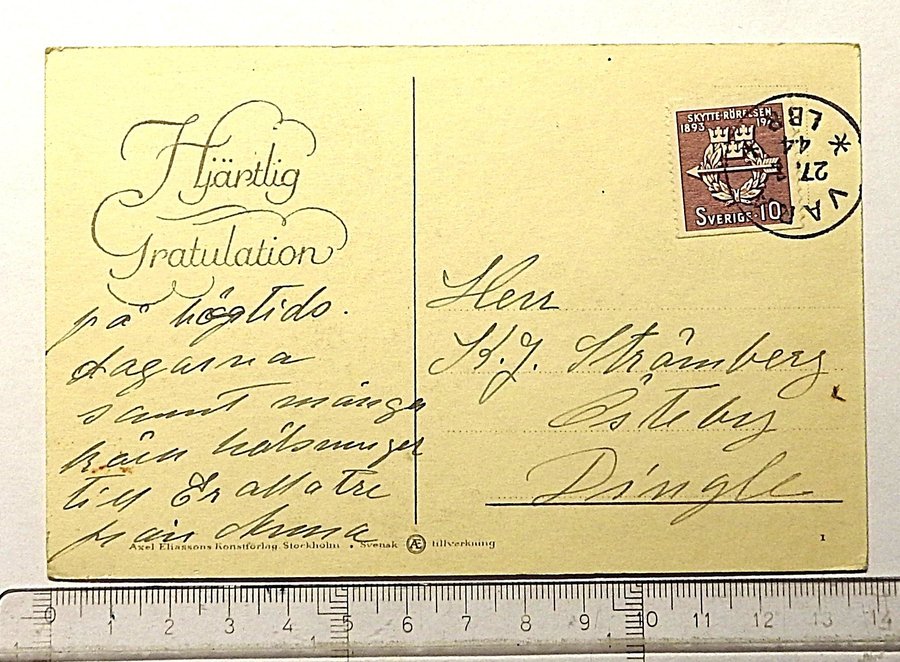 Hjärtlig
Gratulation
på högtids-
dagarna
samt många
kära hälsningar
till Er alla tre
från Anna
Axel Eliassons Konstförlag, Stockholm . Svensk Æ tillverkning
SKYTTE-RÖRELSEN
1893
SVERIGE 10
27.
44
LBR
Herr
K.J. Strömberg
Östeby
Dingle
1
0 1 2 3 4 5 6 7 8 9 10 11 12 13 14